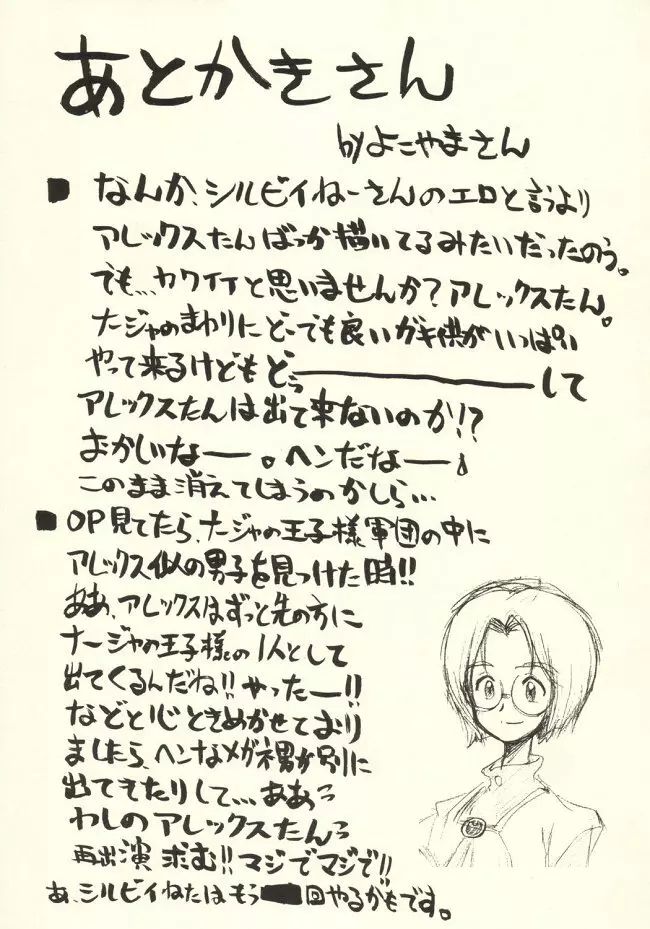 あとかきさん
byよこやまさん
■ なんか、シルビイねーさんのエロと言うより
アレックスたんばっか描いてるみたいだったのう。
でも…カワイイと思いませんか？アレックスたん。
ナージャのまわりにどーでも良いガキ供がいっぱい
やって来るけどもどぅ――――して
アレックスたんは出て来ないのか!?
おかしいなー。ヘンだなー。
このまま消えてしまうのかしら…
■ OP見てたら、ナージャの王子様軍団の中に
アレックス似の男子を見つけた時!!
ああ、アレックスはずっと先の方に
ナージャの王子様の1人として
出てくるんだね!!やったー!!
などと心ときめかせており
ましたら、ヘンなメガネ男が別に
出てきたりして…ああっ
わしのアレックスたんっ
再出演求む!!マジでマジで!!
あ、シルビイねたはもう 回やるかもです。